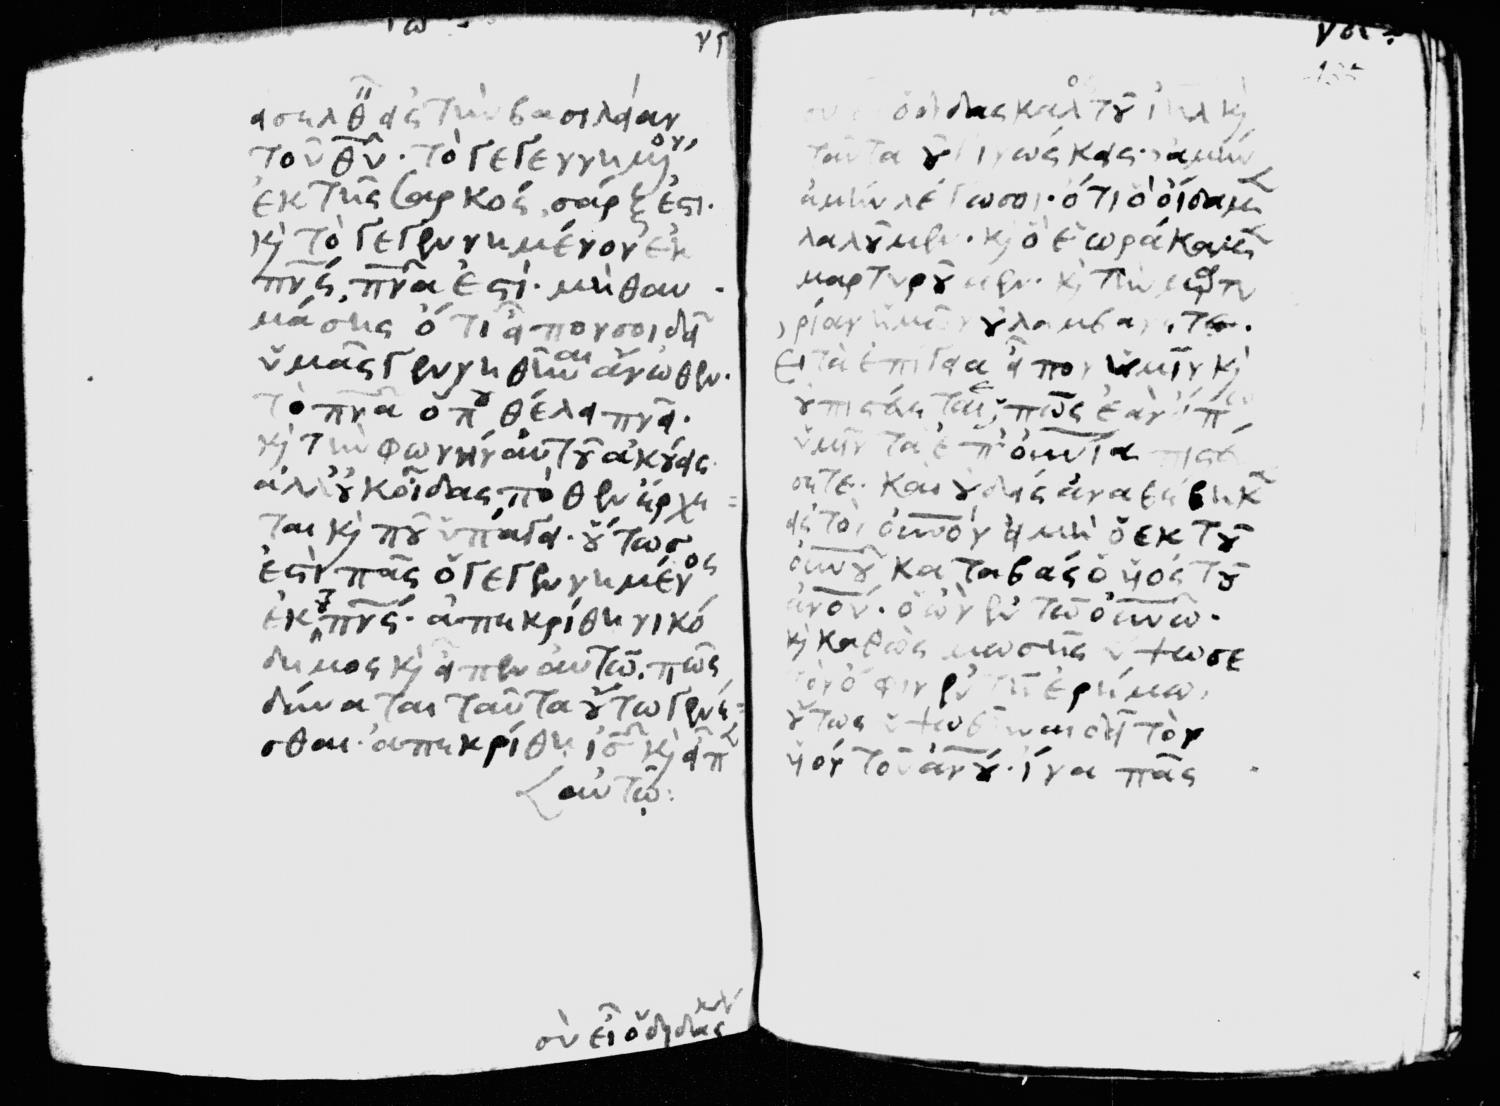 εἰσελθεῖν εἰς τὴν βασιλείαν
τοῦ θῦ· τὸ γεγεννημένον
ἐκ τῆς σαρκός, σάρξ ἐστι·
κ̀ τὸ γεγεννημένον ἐκ
πνς, πνα ἐστί· μὴ θαυ
μάσης ὅτι εἶπον σοι δεῖ
ὑμᾶς γεννηθῆναι ἄνωθεν·
τὸ πνα ὅπου θέλει πνεῖ·
κ̀ τὴν φωνὴν αὐτοῦ ἀκούεις
ἀλλ' οὐκ οἶδας πόθεν ἔρχε
ται κ̀ ποῦ ὑπάγει· οὕτωσ
ἐστὶ πᾶς ὁ γεγεννημένος
ἐκ τοῦ πνς· ἀπεκρίθη νικό
δημος κ̀ εἶπεν αὐτῶ, πῶς
δύναται ταῦτα οὕτω γενέ
σθαι· ἀπεκρίθη ὁ ις κ̀ εἶπεν
αὐτῶ:
σὺ εἶ ὁ διδάσκαλ
διδάσκαλος τοῦ ιηλ κ̀
ταῦτα οὐ γινώσκεις· ἀμὴν
ἀμὴν λέγω σοι· ὅτι ὃ οἴδαμεν
λαλοῦμεν· κ̀ ὃ ἑωράκαμεν
μαρτυροῦμεν· κ̀ τὴν μαρτυ
ρίαν ἡμῶν οὐ λαμβάνετε·
Εἰ τὰ ἐπίγεια εἶπον ὑμῖν κ̀
οὐ πιστεύεται, πῶς ἐὰν εἴπω
ὑμῖν τὰ ἐπουνια πιστεύ
σητε· Καὶ οὐδεὶς ἀναβέβηκεν
εἰς τὸν ουνον εἰ μὴ ὁ ἐκ τοῦ
ουνου καταβάς ὁ υἱός τοῦ
ανου· ὁ ὢν ἐν τῶ ουνω·
κ̀ καθὼς μωσῆς ὕψωσε
τὸν ὄφιν ἐν τῆ ἐρήμω,
οὕτως ὑψωθῆναι δεῖ τὸν
υἱὸν τοῦ ανου· ἵνα πᾶς